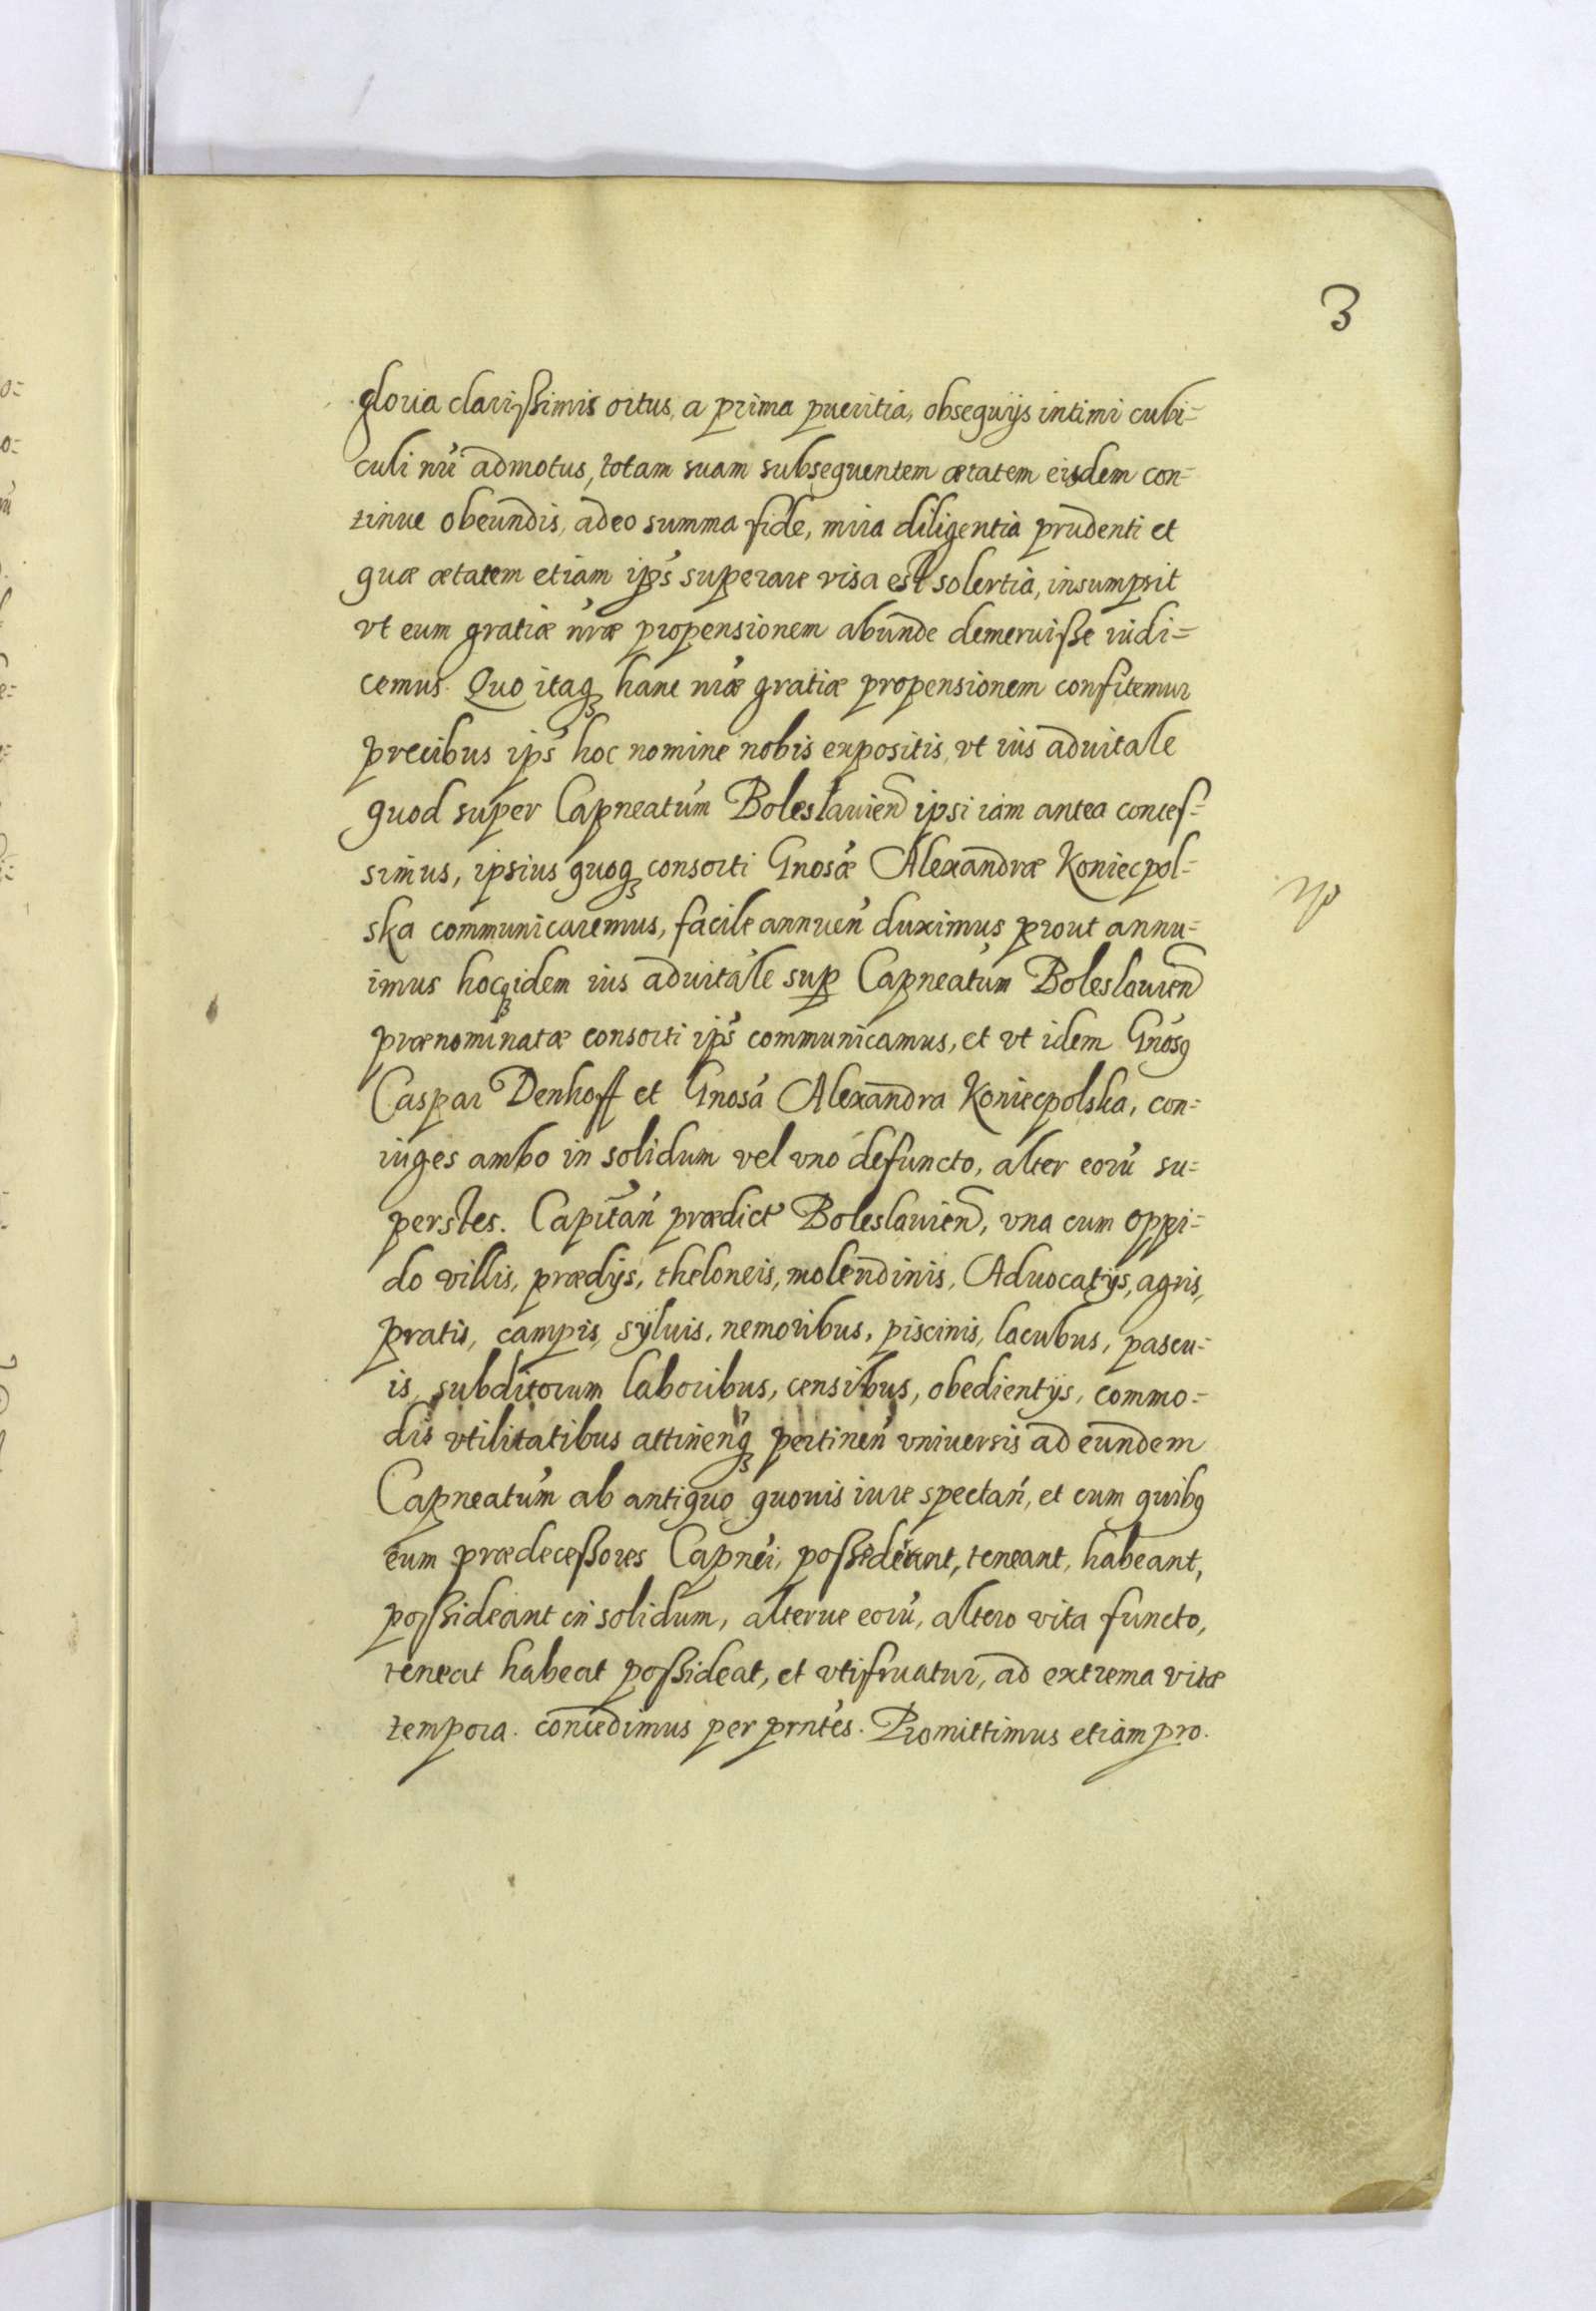 3
gloria clarissimis ortus, a prima pueritia, obsequijs intimi cubi=
culi nri admotus, totam suam subsequentem ætatem eisdem con=
tinue obeundis, adeo summa fide, mira diligentia prudenti et
quæ ætatem etiam ips superare visa est solertia, insumpsit
vt eum gratiæ nræ propensionem abunde demeruisse iudi=
cemus. Quo itaq hanc nræ gratiæ propensionem confitemur
precibus ips hoc nomine nobis expositis, vt ius aduitale
quod super Capneatum Boleslauien ipsi iam antea conces=
simus, ipsius quoq consorti Gnosæ Alexandræ Koniecpol=
ska communicaremus, facile annuen duximus prout annu=
imus hocqidem ius aduitale sup Capneatum Boleslauien
prænominatæ consorti ips communicamus, et vt idem Gnosq
Caspar Denhoff et Gnosa Alexandra Koniecpolska, con=
iuges ambo in solidum vel vno defuncto, alter eorū su=
perstes. Capitan prædict Boleslauien, vna cum oppi=
do villis, prædijs, theloneis, molendinis, Aduocatijs, agris,
pratis, campis, syluis, nemoribus, piscinis, lacubus, pascu=
is, subditorum laboribus, censibus, obedientijs, commo=
dis vtilitatibus attinenq pertinen vniuersis ad eundem
Capneatum ab antiquo quouis iure spectan, et cum quibq
eum prædecessores Capnei, possederunt, teneant, habeant,
possideant in solidum, alterue eorū, altero vita functo,
teneat habeat possideat, et vtifruatur, ad extrema vitæ
tempora. concedimus per prntes. Promittimus etiam pro.